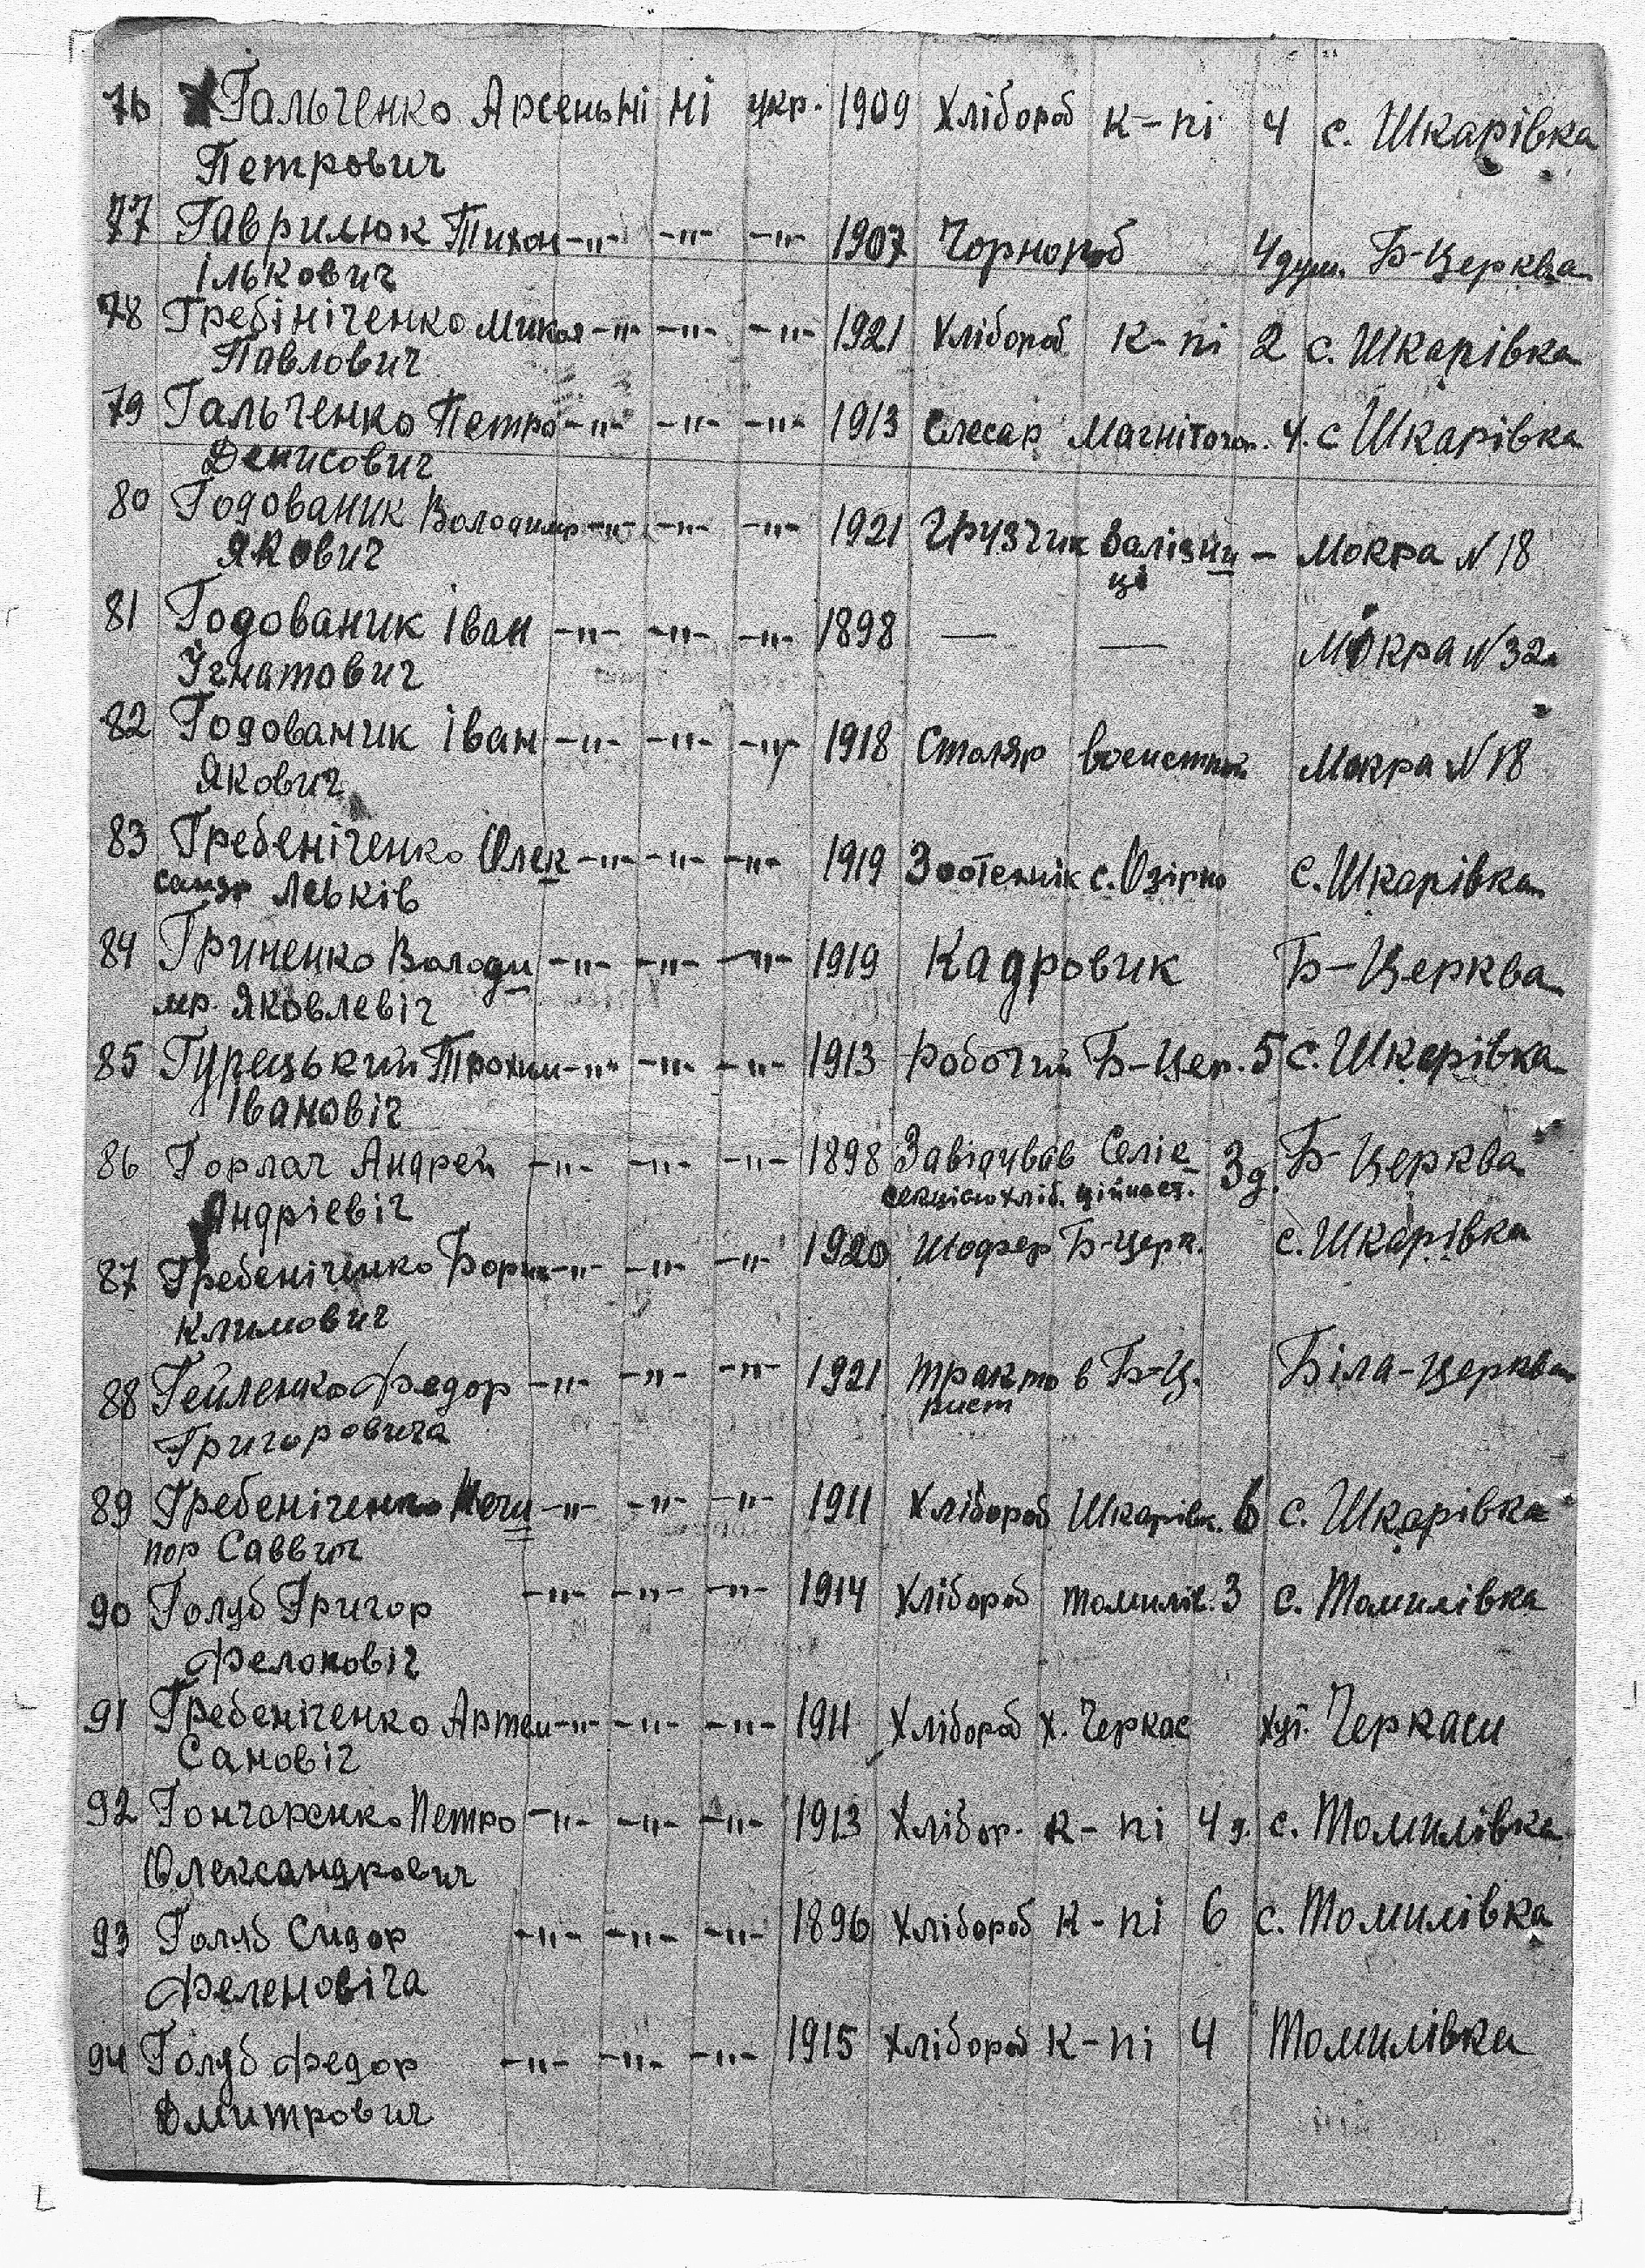 76 Гальченко Арсень ні ні укр. 1909 Хлібороб к-пі 4 с. Шкарівка
Петрович
77 Гаврилюк Тихон -"- -"- -"- 1907 Чорнороб 4 душ. Б-Церква
Ількович
78 Гребініченко Микол -"- -"- -"- 1921 Хлібороб к-пі 2 с. Шкарівка
Павлович
79 Гальченко Петро -"- -"- -"- 1913 Слесар Магнітогор. 4. с Шкарівка
Денисович
80 Годованик Володимир -"- -"- -"- 1921 Грузчик Залізни – Мокра N 18
Якович ці
81 Годованик Іван -"- -"- -"- 1898 — — Мокра N 32
Ігнатович
82 Годованик Іван -"- -"- -"- 1918 Столяр Мокра N 18
Якович
83 Гребеніченко Олек -"- -"- -"- 1919 Зоотеннік с. Озірно с. Шкарівка
сандр Леьків
84 Гриненко Володи -"- -"- -"- 1919 Кадровик Б-Церква
мр. Яковлевіч
85 Гурецький Трохим -"- -"- -"- 1913 Робочий Б-Цер. 5 с. Шкарівка
Івановіч
86 Горлач Андрей -"- -"- -"- 1898 Завідував Селіє 3 д. Б-Церква
Андріевіч секцією хліб.
87 Гребеніченко Борис -"- -"- -"- 1920 Шофер Б-Церк. с. Шкарівка
Климович
88 Гейленко Федор -"- -"- -"- 1921 Тракто в Б-Ц. Біла-Церква
Григоровича рист
89 Гребеніченко Нечи -"- -"- -"- 1911 Хлібороб Шкарівк. 6 с. Шкарівка
пор Саввич
90 Голуб Григор -"- -"- -"- 1914 Хлібороб Томилів. 3 с. Томилівка
Фелоновіч
91 Гребеніченко Артем -"- -"- -"- 1911 Хлібороб х. Черкас хут. Черкаси
Сановіч
92 Гончаренко Петро -"- -"- -"- 1913 Хлібор. к-пі 4 д. с. Томилівка
Олександрович
93 Голуб Сидор -"- -"- -"- 1896 Хлібороб к-пі 6 с. Томилівка
Феленовіча
94 Голуб Федор -"- -"- -"- 1915 Хлібороб к-пі 4 Томилівка
Дмитрович